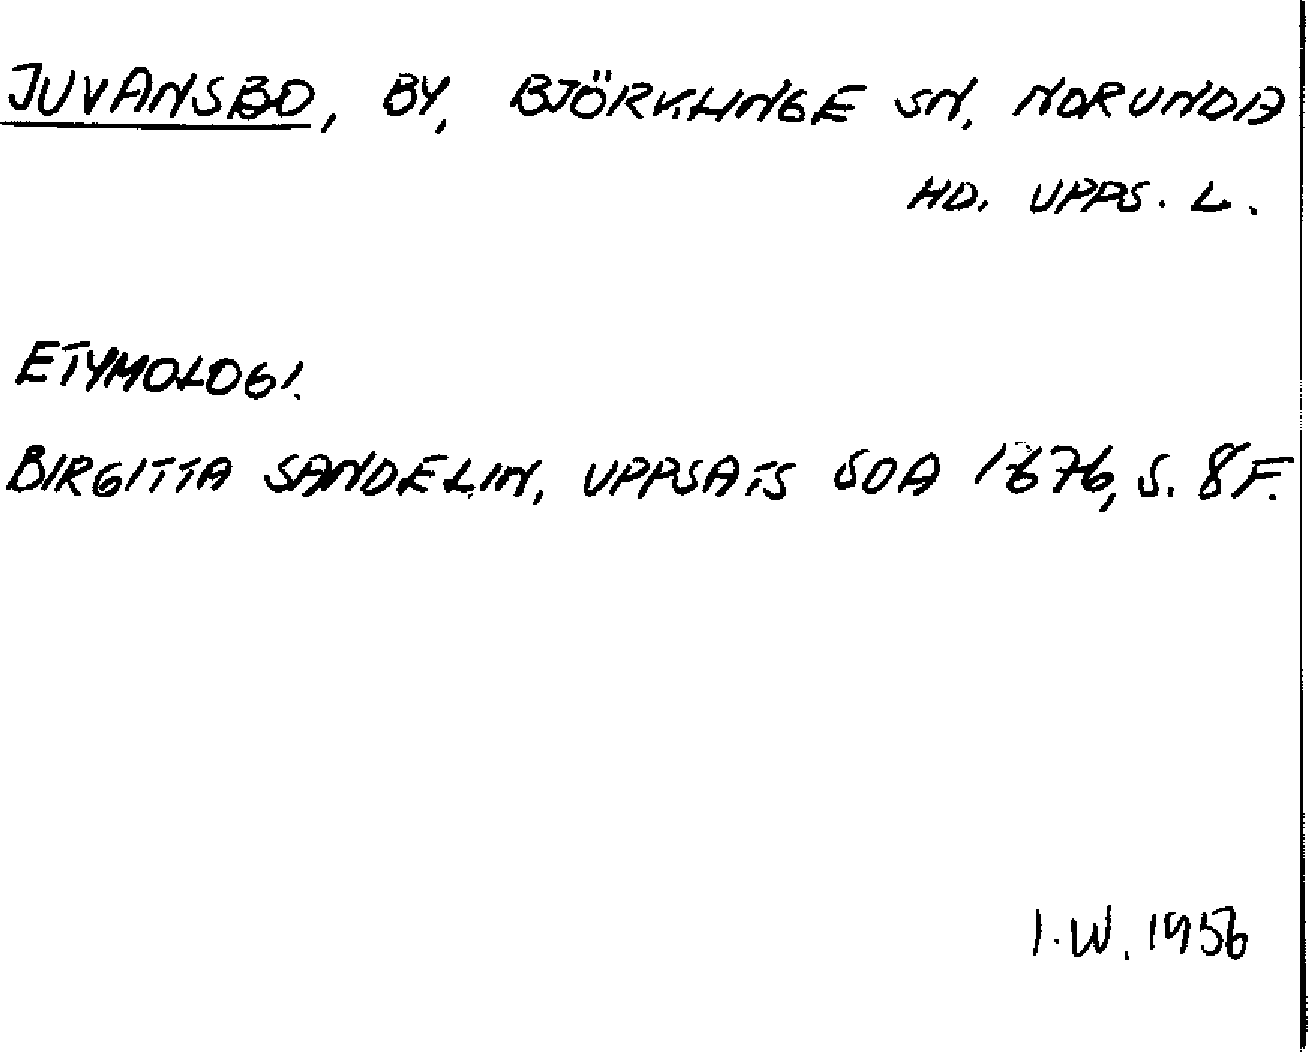 JUVANSBO, BY, BJÖRKLINGE SN, NORUNDA
HD. UPPS. L.
ETYMOLOGI.
BIRGITTA SANDELIN, UPPSATS SOA 1676, S. 8 F.
I.W. 1956